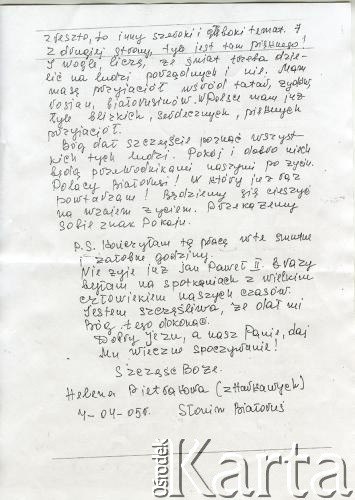 zresztą, to inny szeroki i głęboki temat. 7
Z drugiej strony, tyle jest tam pięknego!
I wogle liczę, że świat trzeba dzie-
lić na ludzi porządnych i nie. Mam
masę przyjaciół wśród tatar, żydów,
rosjan, białorusinów. W Polsce mam już
tyle bliskich, serdecznych, pięknych
przyjaciół.
Bóg dał szczęście poznać wszyst-
kich tych ludzi. Pokój i dobro niech
będą przewodnikami naszymi po życiu.
Polacy Białorusi! W który już raz
powtarzam! Będziemy się cieszyć
na wzajem życiem. Przekażemy
sobie znak Pokoju.
P.S. kończyłam tą pracą w te smutne
i żałobne godziny.
Nie żyje już Jan Paweł II. 3 razy
byłam na spotkaniach z wielkim
człowiekiem naszych czasów.
Jestem szczęśliwa, że dał mi
Bóg tego dokonać.
Dobry Jezu, a nasz Panie, daj
Mu wieczne spoczywanie!
Szczęść Boże.
Helena Pietrakowa (z
4-04-05r. Słonim Białoruś
ośrodek
Karta